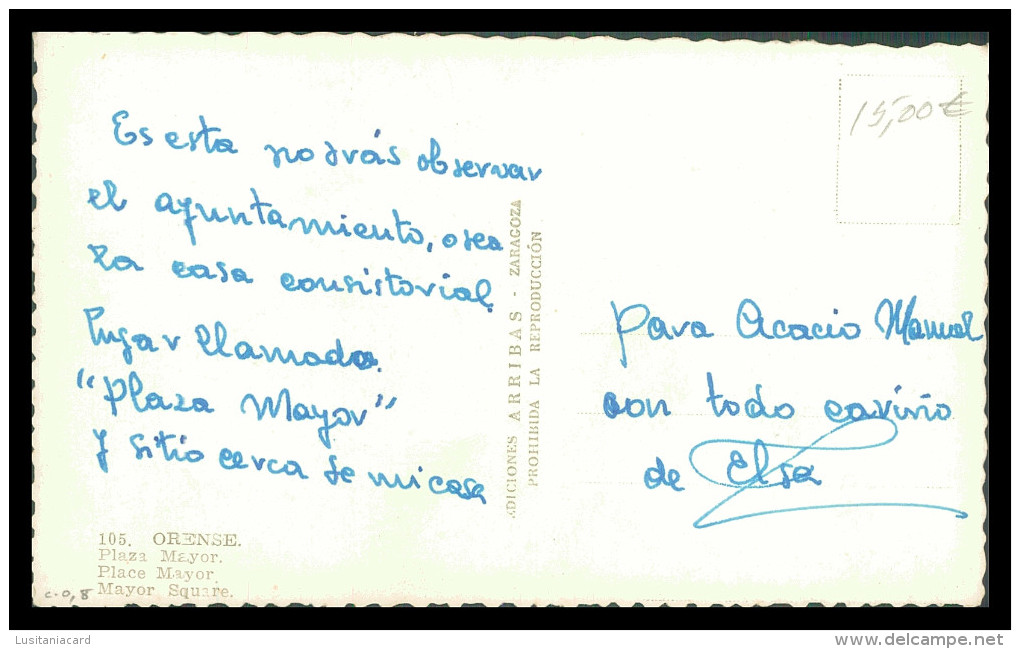 Es esta podrás observar
el ayuntamiento, o sea
La casa consistorial.
Lugar llamado.
"Plaza Mayor"
y sitio cerca de mi casa
105. ORENSE.
Plaza Mayor.
Place Mayor.
Mayor Square.
c.0,8
EDICIONES ARRIBAS - ZARAGOZA
PROHIBIDA LA REPRODUCCIÓN
15,00 €
Para Acacio Manuel
con todo cariño
de Elsa
Lusitaniacard
www.delcampe.net